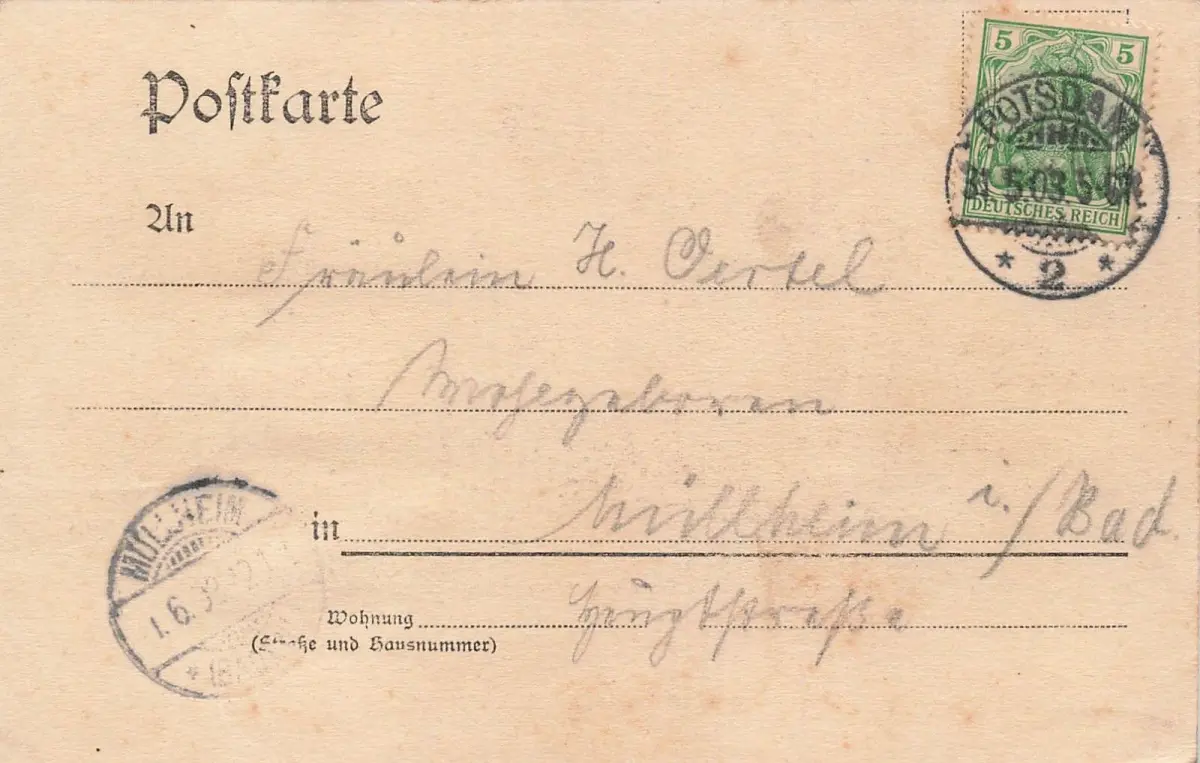 Postkarte
5 5
POTSDAM
31.5.03.5-6N.
DEUTSCHES REICH
* 2 *
An
Fräulein H. Oertel
Wohlgeboren
MÜLLHEIM
1.6.
in Müllheim i./Bad.
Wohnung Hauptstraße
(Straße und Hausnummer)